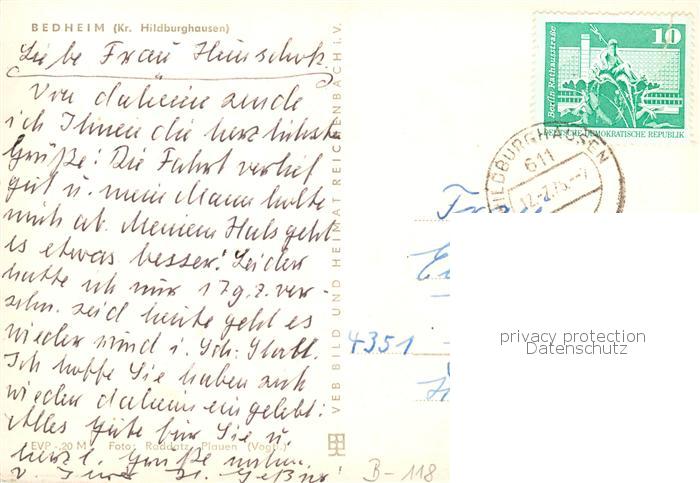 BEDHEIM (Kr. Hildburghausen)
Liebe Frau
Von daheim sende
ich Ihnen die herzlichste
Grüße! Die Fahrt verlief
gut u. mein Mann holte
mich ab. Meinem Hals geht
es etwas besser! Leider
hatte ich nur 1 Tg. z. ver-
schn. seid heute geht es
wieder rund i. Sch. Stall.
Ich hoffe Sie haben sich
wieder daheim eingelebt!
Alles Gute für Sie u.
EVP -,20 M Foto: Raddatz, Plauen (Vogtl.)
herzl. Grüße
VEB BILD UND HEIMAT REICHENBACH i. V.
10
Berlin, Rathausstraße
DEUTSCHE DEMOKRATISCHE REPUBLIK
HILDBURGHAUSEN
611
Frau
4351
privacy protection
Datenschutz
B-118